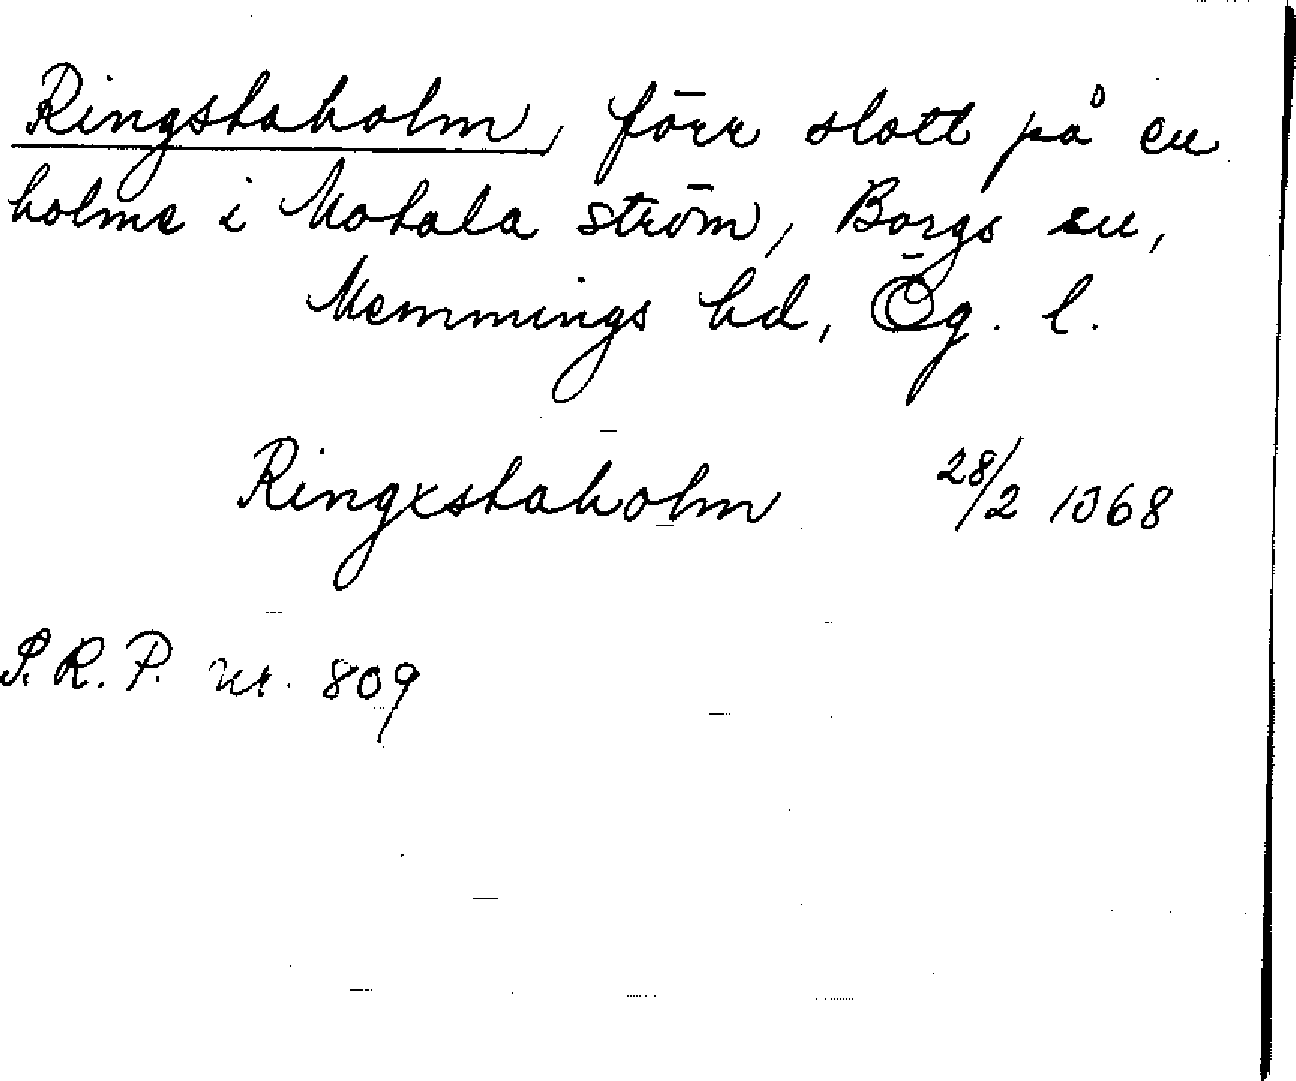 Ringstaholm, förr slott på en
holme i Motala ström, Borgs sn,
Memmings hd, Ög. l.
Ringxstaholm 28/2 1368
S.R.P. nr. 809